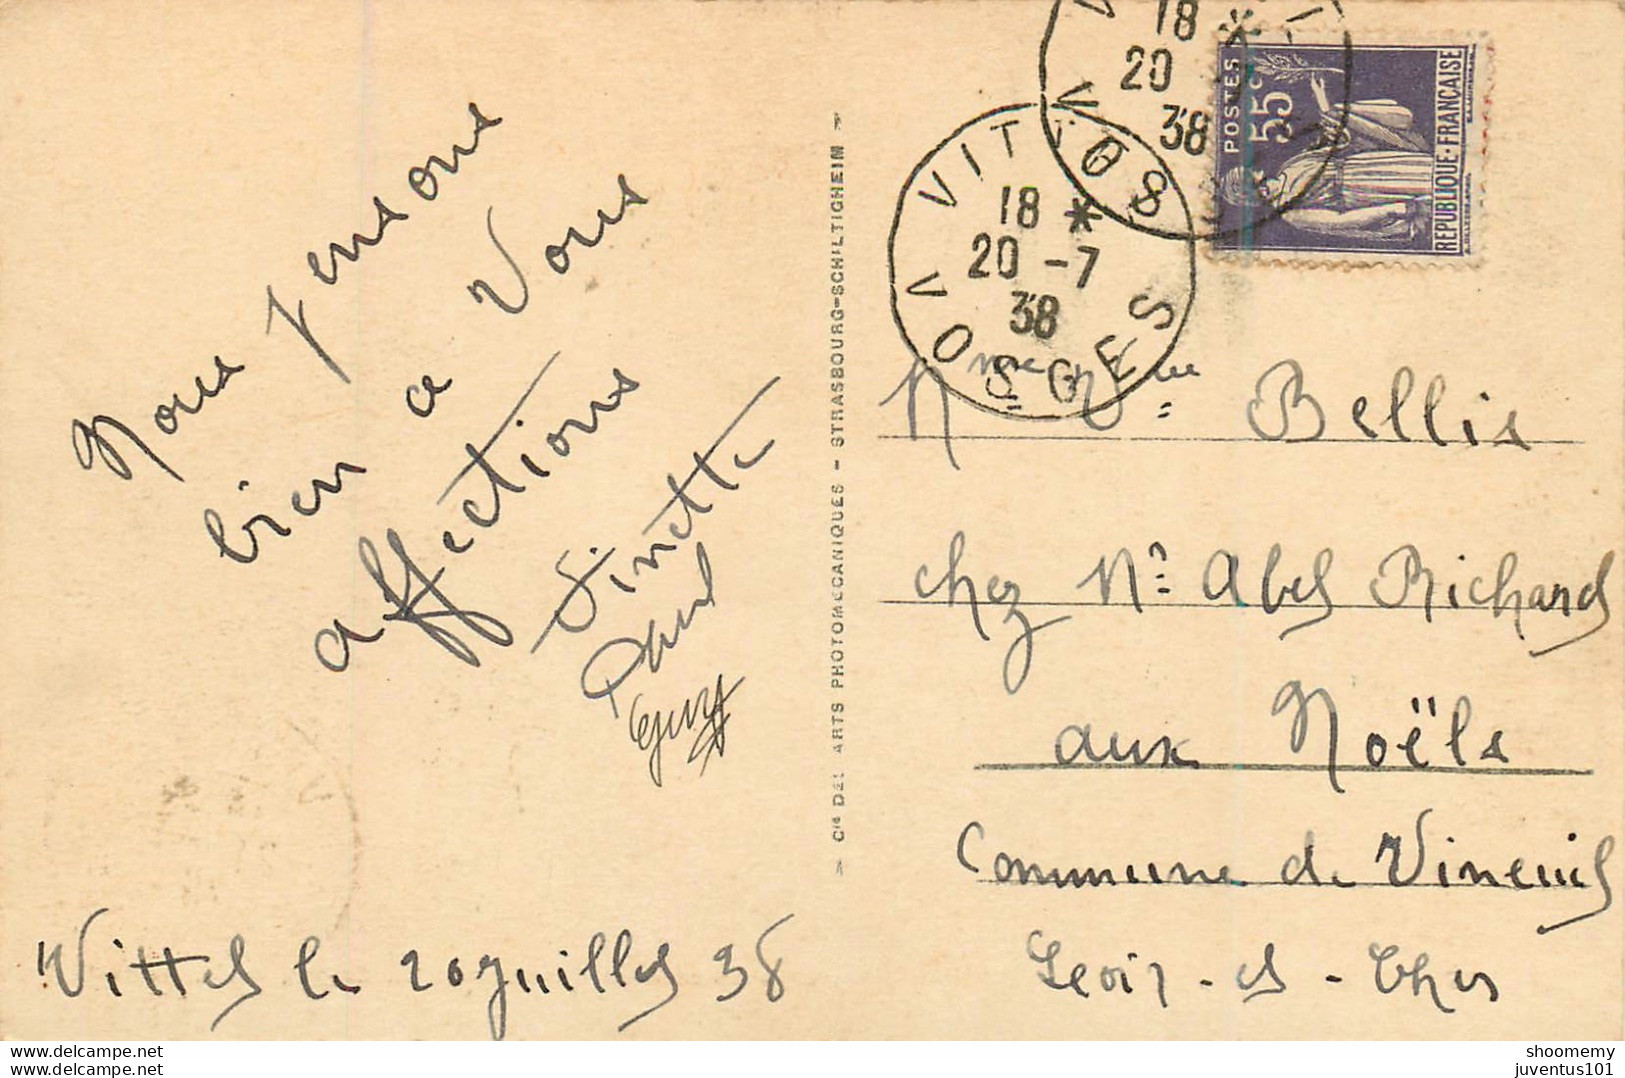 Nous pensons
bien a Vous
affections
Ginette
Paul
Guy
Vittel le 20 Juillet 38
Cie DES ARTS PHOTOMECANIQUES - STRASBOURG-SCHILTIGHEIM
VITTEL
18 *
20 -7
38
VOSGES
18 *
20
38
VOSGES
POSTES
55c
REPUBLIQUE-FRANÇAISE
Bellis
chez Mr Abel Richard
aux Noëls
Commune de Vineuil
Loir-et-Cher
www.delcampe.net
www.delcampe.net
shoomemy
juventus101